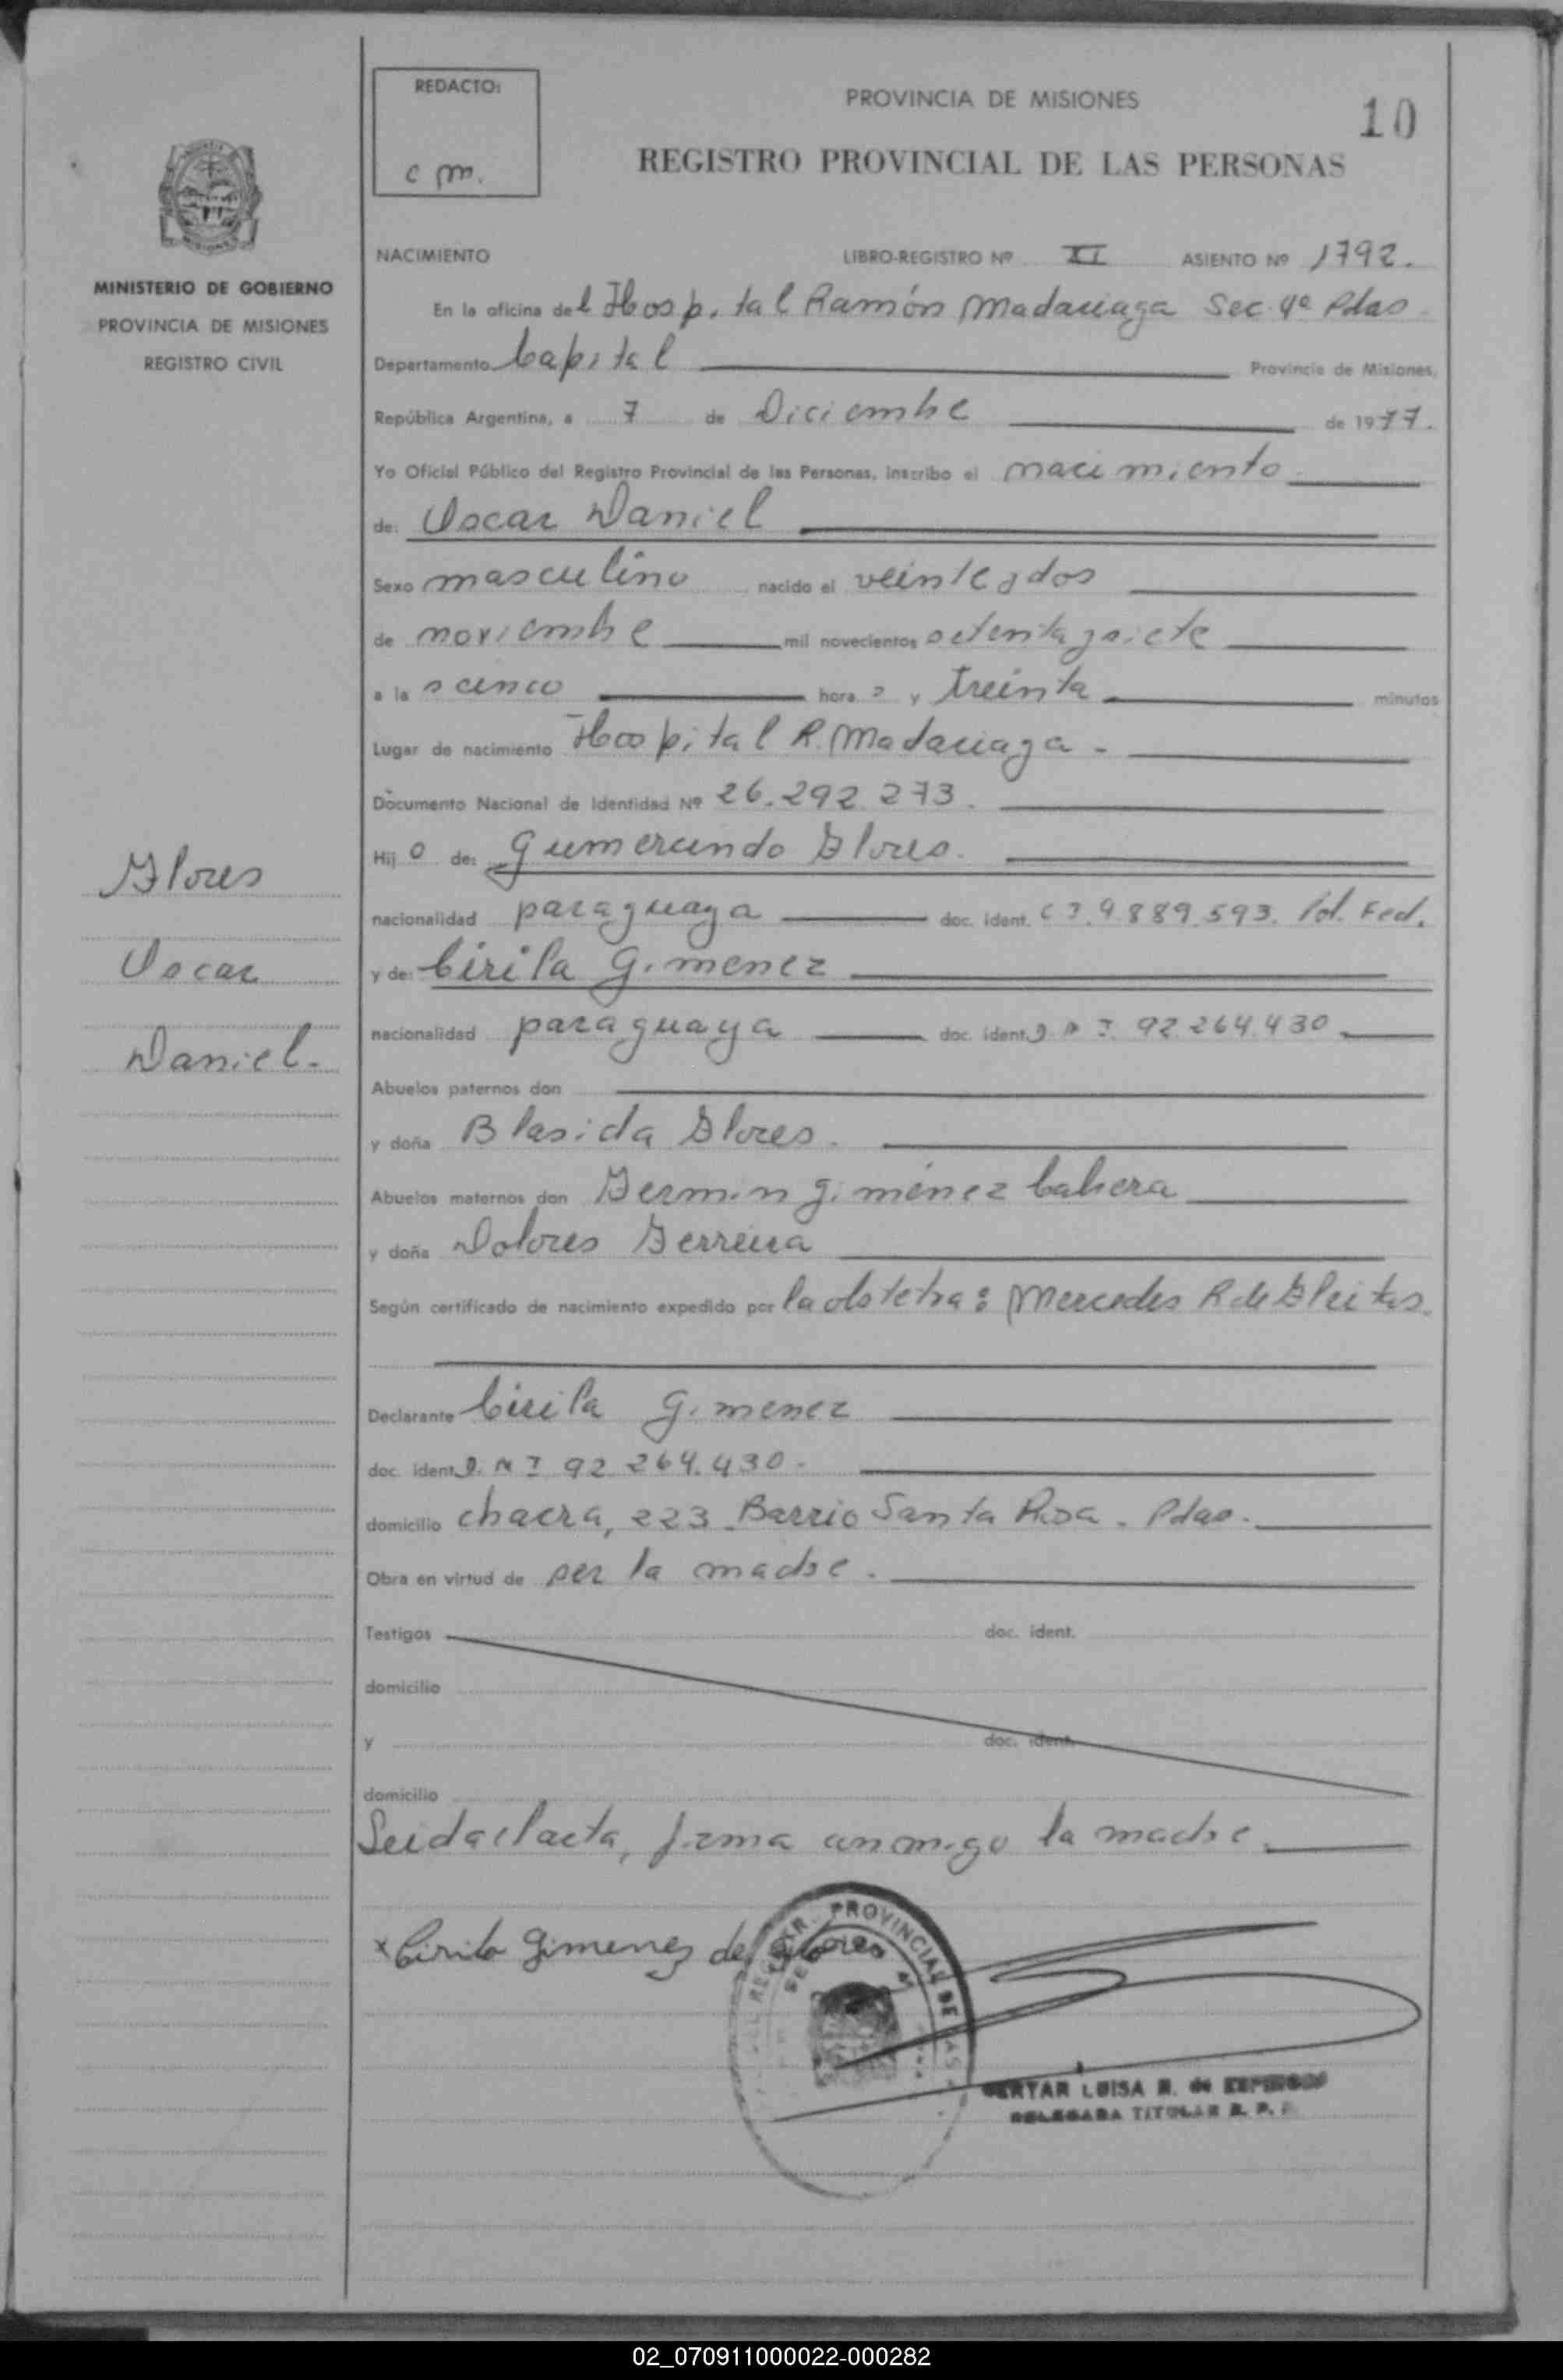 REDACTO:
c m.
PROVINCIA DE MISIONES
10
REGISTRO PROVINCIAL DE LAS PERSONAS
MINISTERIO DE GOBIERNO
PROVINCIA DE MISIONES
REGISTRO CIVIL
NACIMIENTO LIBRO-REGISTRO Nº XI ASIENTO Nº 1792.
En la oficina del Hospital Ramón Madariaga Sec. 4ª Pdas
Departamento Capital Provincia de Misiones,
República Argentina, a 7 de Diciembre de 1977.
Yo Oficial Público del Registro Provincial de las Personas, inscribo el nacimiento
de: Oscar Daniel
Sexo masculino nacido el veinteydos
de noviembre mil novecientos setentaysiete
a las cinco horas y treinta minutos
Lugar de nacimiento Hospital R. Madariaga -
Documento Nacional de Identidad Nº 26.292.273.
Hijo de: Gumercindo Flores.
nacionalidad paraguaya doc. ident. C I 9.889.593. Pol. Fed.
y de: Cirila Gimenez
nacionalidad paraguaya doc. ident. D N I 92.264.430
Abuelos paternos don
y doña Blasida Flores.
Abuelos maternos don Fermin Giménez Cabrera
y doña Dolores Ferreira
Según certificado de nacimiento expedido por la obstetra: Mercedes R de Fleitas.
Declarante Cirila Gimenez
doc. ident. D. N I 92.264.430.
domicilio chacra, 223 Barrio Santa Rosa. Pdas.
Obra en virtud de ser la madre.
Testigos doc. ident.
domicilio
y doc. ident.
domicilio
Leida el acta, firma conmigo la madre.
x Cirila Gimenez de Flores
Flores
Oscar
Daniel.
PROVINCIAL DE LAS
LUISA
DELEGADA TITULAR R. P. P.
02_070911000022-000282